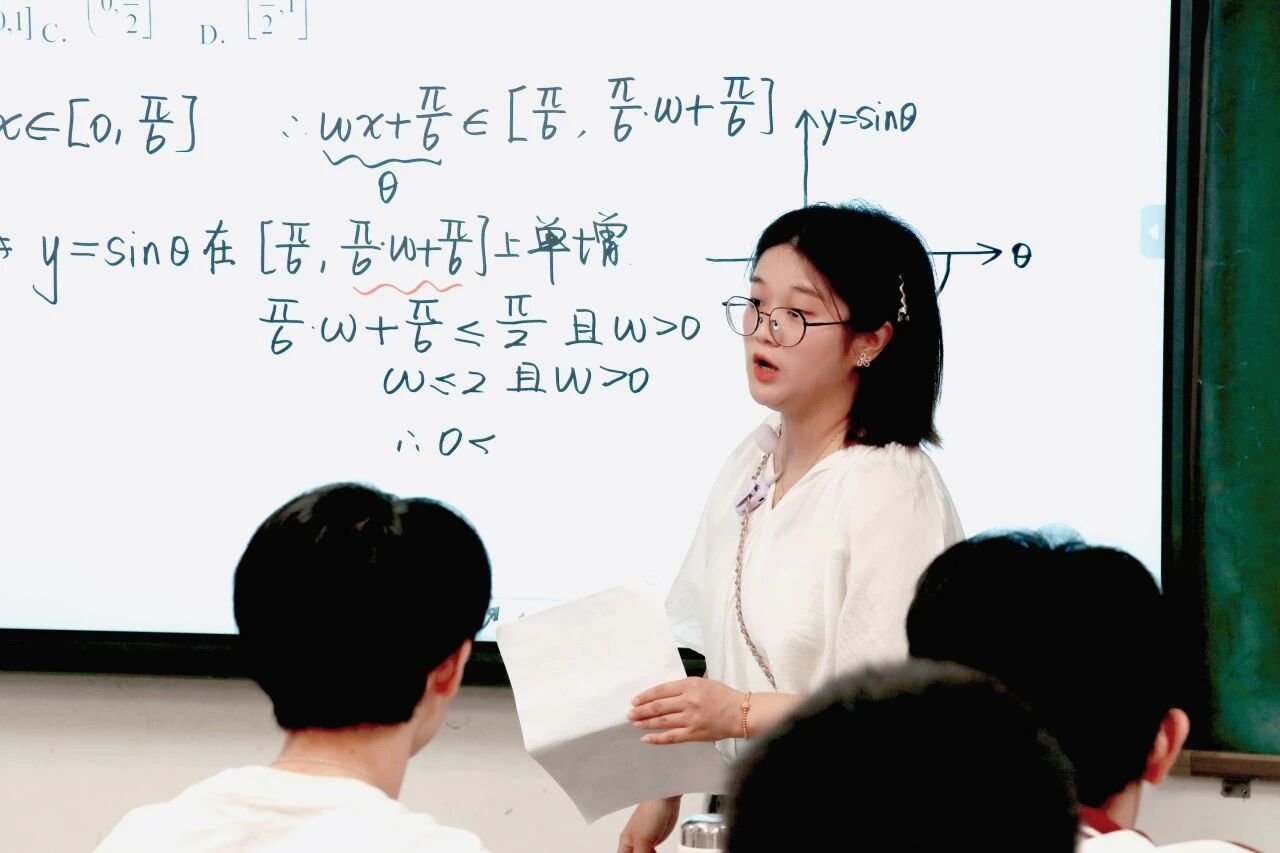 0,1] C. (0, 1/2] D. [1/2, 1]
x∈[0, π/6] ∴ wx+π/6 ∈ [π/6, π/6·w+π/6]
θ
y=sinθ
y=sinθ在[π/6, π/6·w+π/6]上单增
θ
π/6·w+π/6≤π/2 且w>0
w≤2 且w>0
∴0<